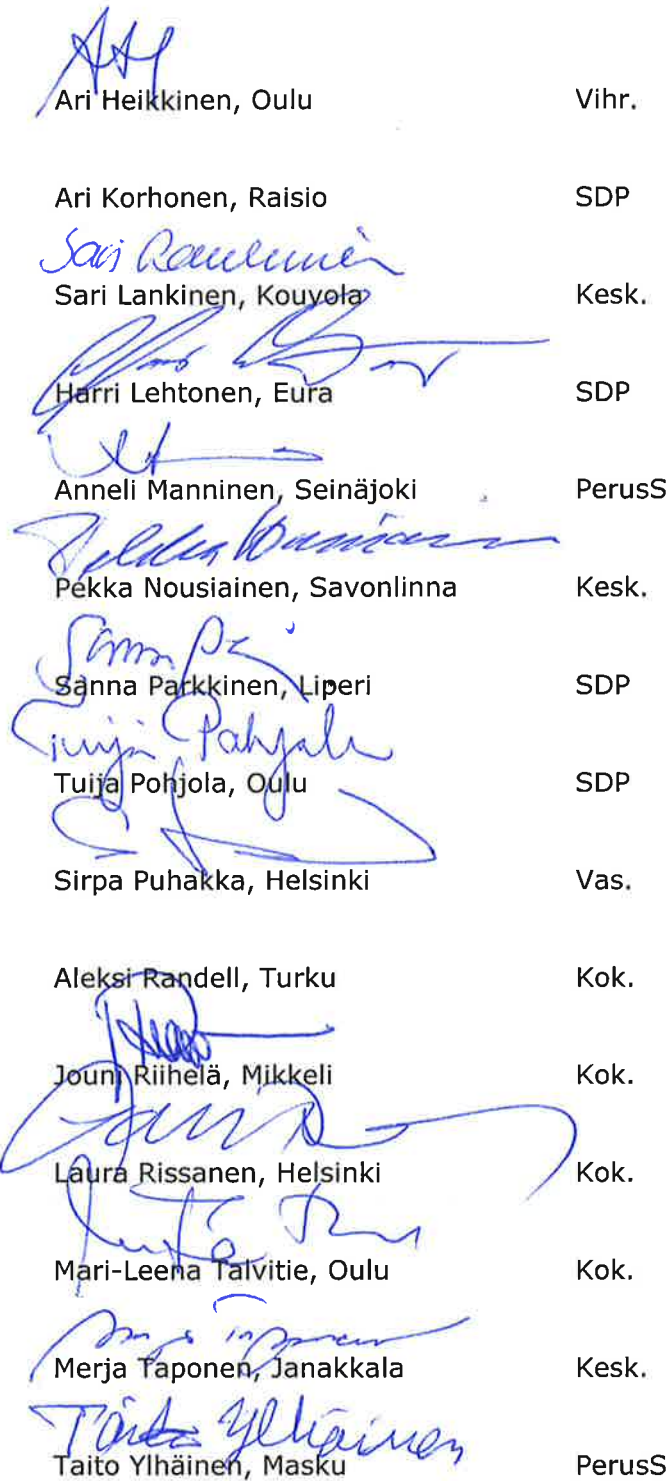 Ari Heikkinen, Oulu Vihr.
Ari Korhonen, Raisio SDP
Sari
Sari Lankinen, Kouvola Kesk.
Harri Lehtonen, Eura SDP
Anneli Manninen, Seinäjoki PerusS
Pekka
Pekka Nousiainen, Savonlinna Kesk.
Sanna
Sanna Parkkinen, Liperi SDP
Tuija Pohjola
Tuija Pohjola, Oulu SDP
Sirpa Puhakka, Helsinki Vas.
Aleksi Randell, Turku Kok.
Jouni Riihelä, Mikkeli Kok.
Laura Rissanen, Helsinki Kok.
Mari-Leena Talvitie, Oulu Kok.
Merja Taponen, Janakkala Kesk.
Taito Ylhäinen
Taito Ylhäinen, Masku PerusS